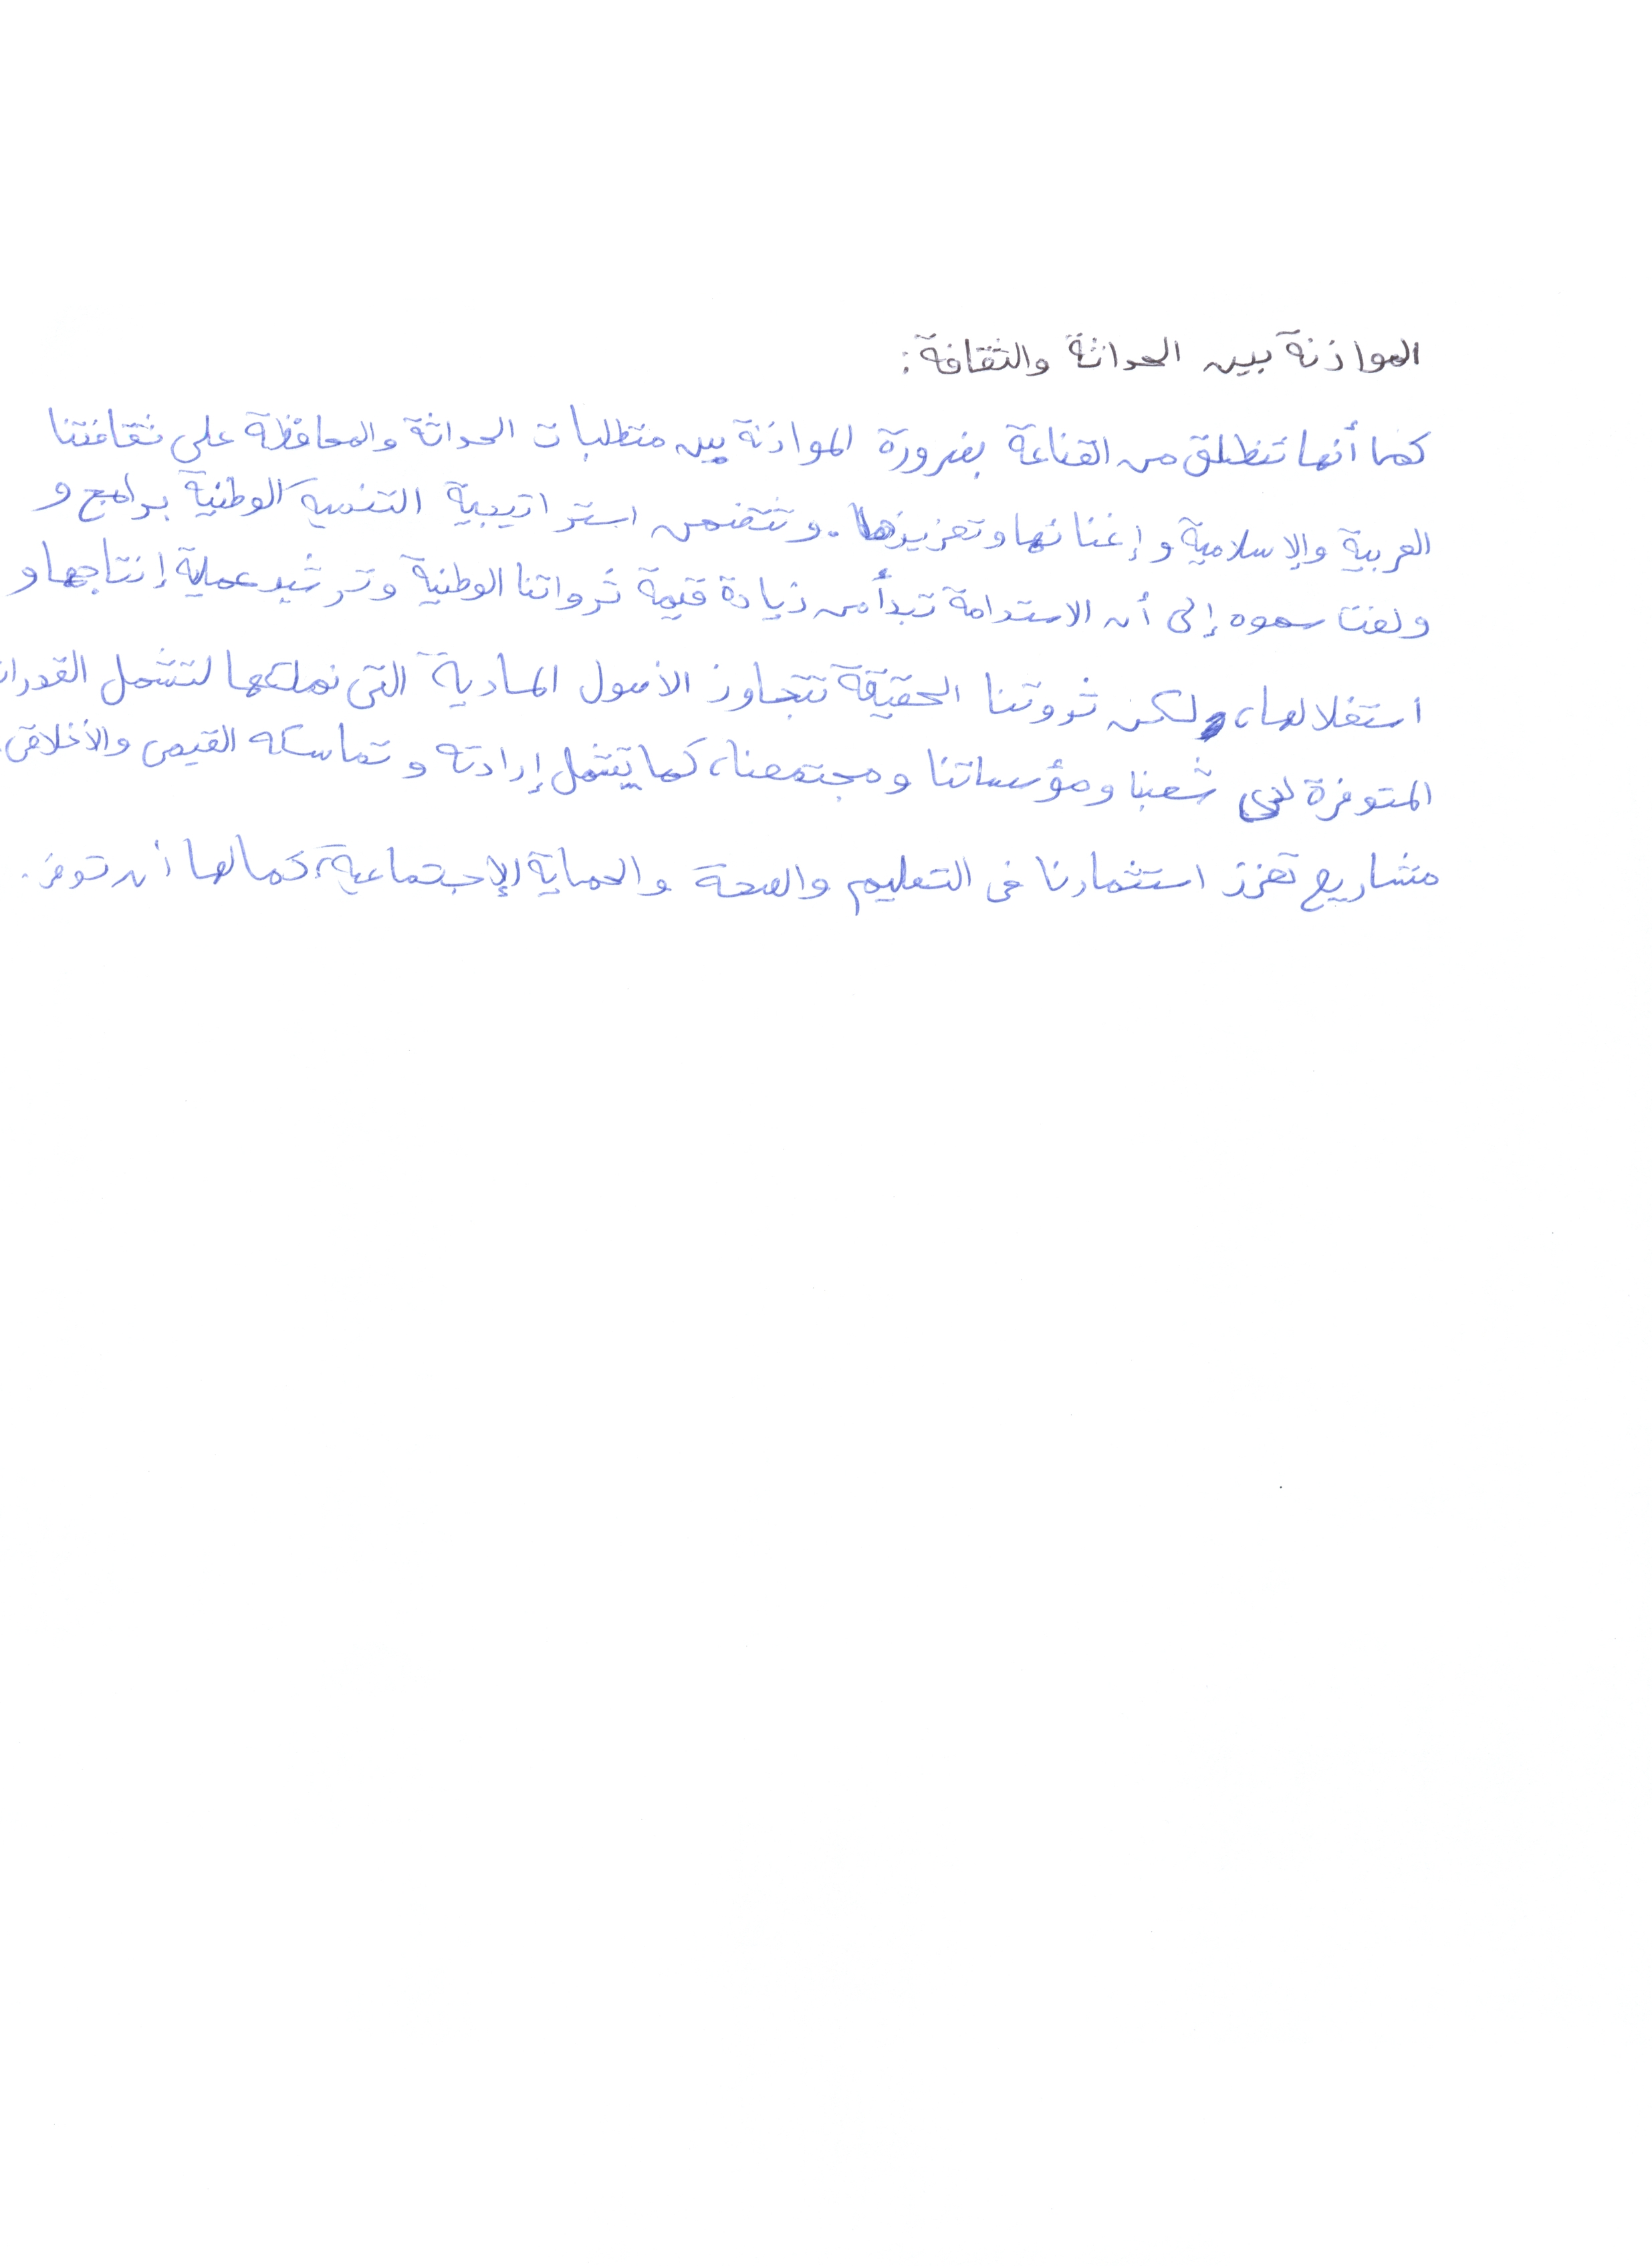 الموازنة بين الحداثة والثقافة:
كما أنها تنطلق من القناعة بضرورة الموازنة بين متطلبات الحداثة والمحافظة على ثقافتنا
العربية والإسلامية وإغنائها وتعزيزها. وتتضمن استراتيجية التنمية الوطنية برامج و
ولفت سموه إلى أن الاستدامة تبدأ من زيادة قيمة ثرواتنا الوطنية وترشيد عملية إنتاجها و
استغلالها، ولكن ثروتنا الحقيقة تتجاوز الأصول المادية التي نملكها لتشمل القدرات
المتوفرة لدى شعبنا ومؤسساتنا ومجتمعنا، كما تشمل إرادته وتماسكه القيمي والأخلاقي.
مشاريع تعزز استثمارنا في التعليم والصحة والحماية الإجتماعية، كما لها أن توفر.